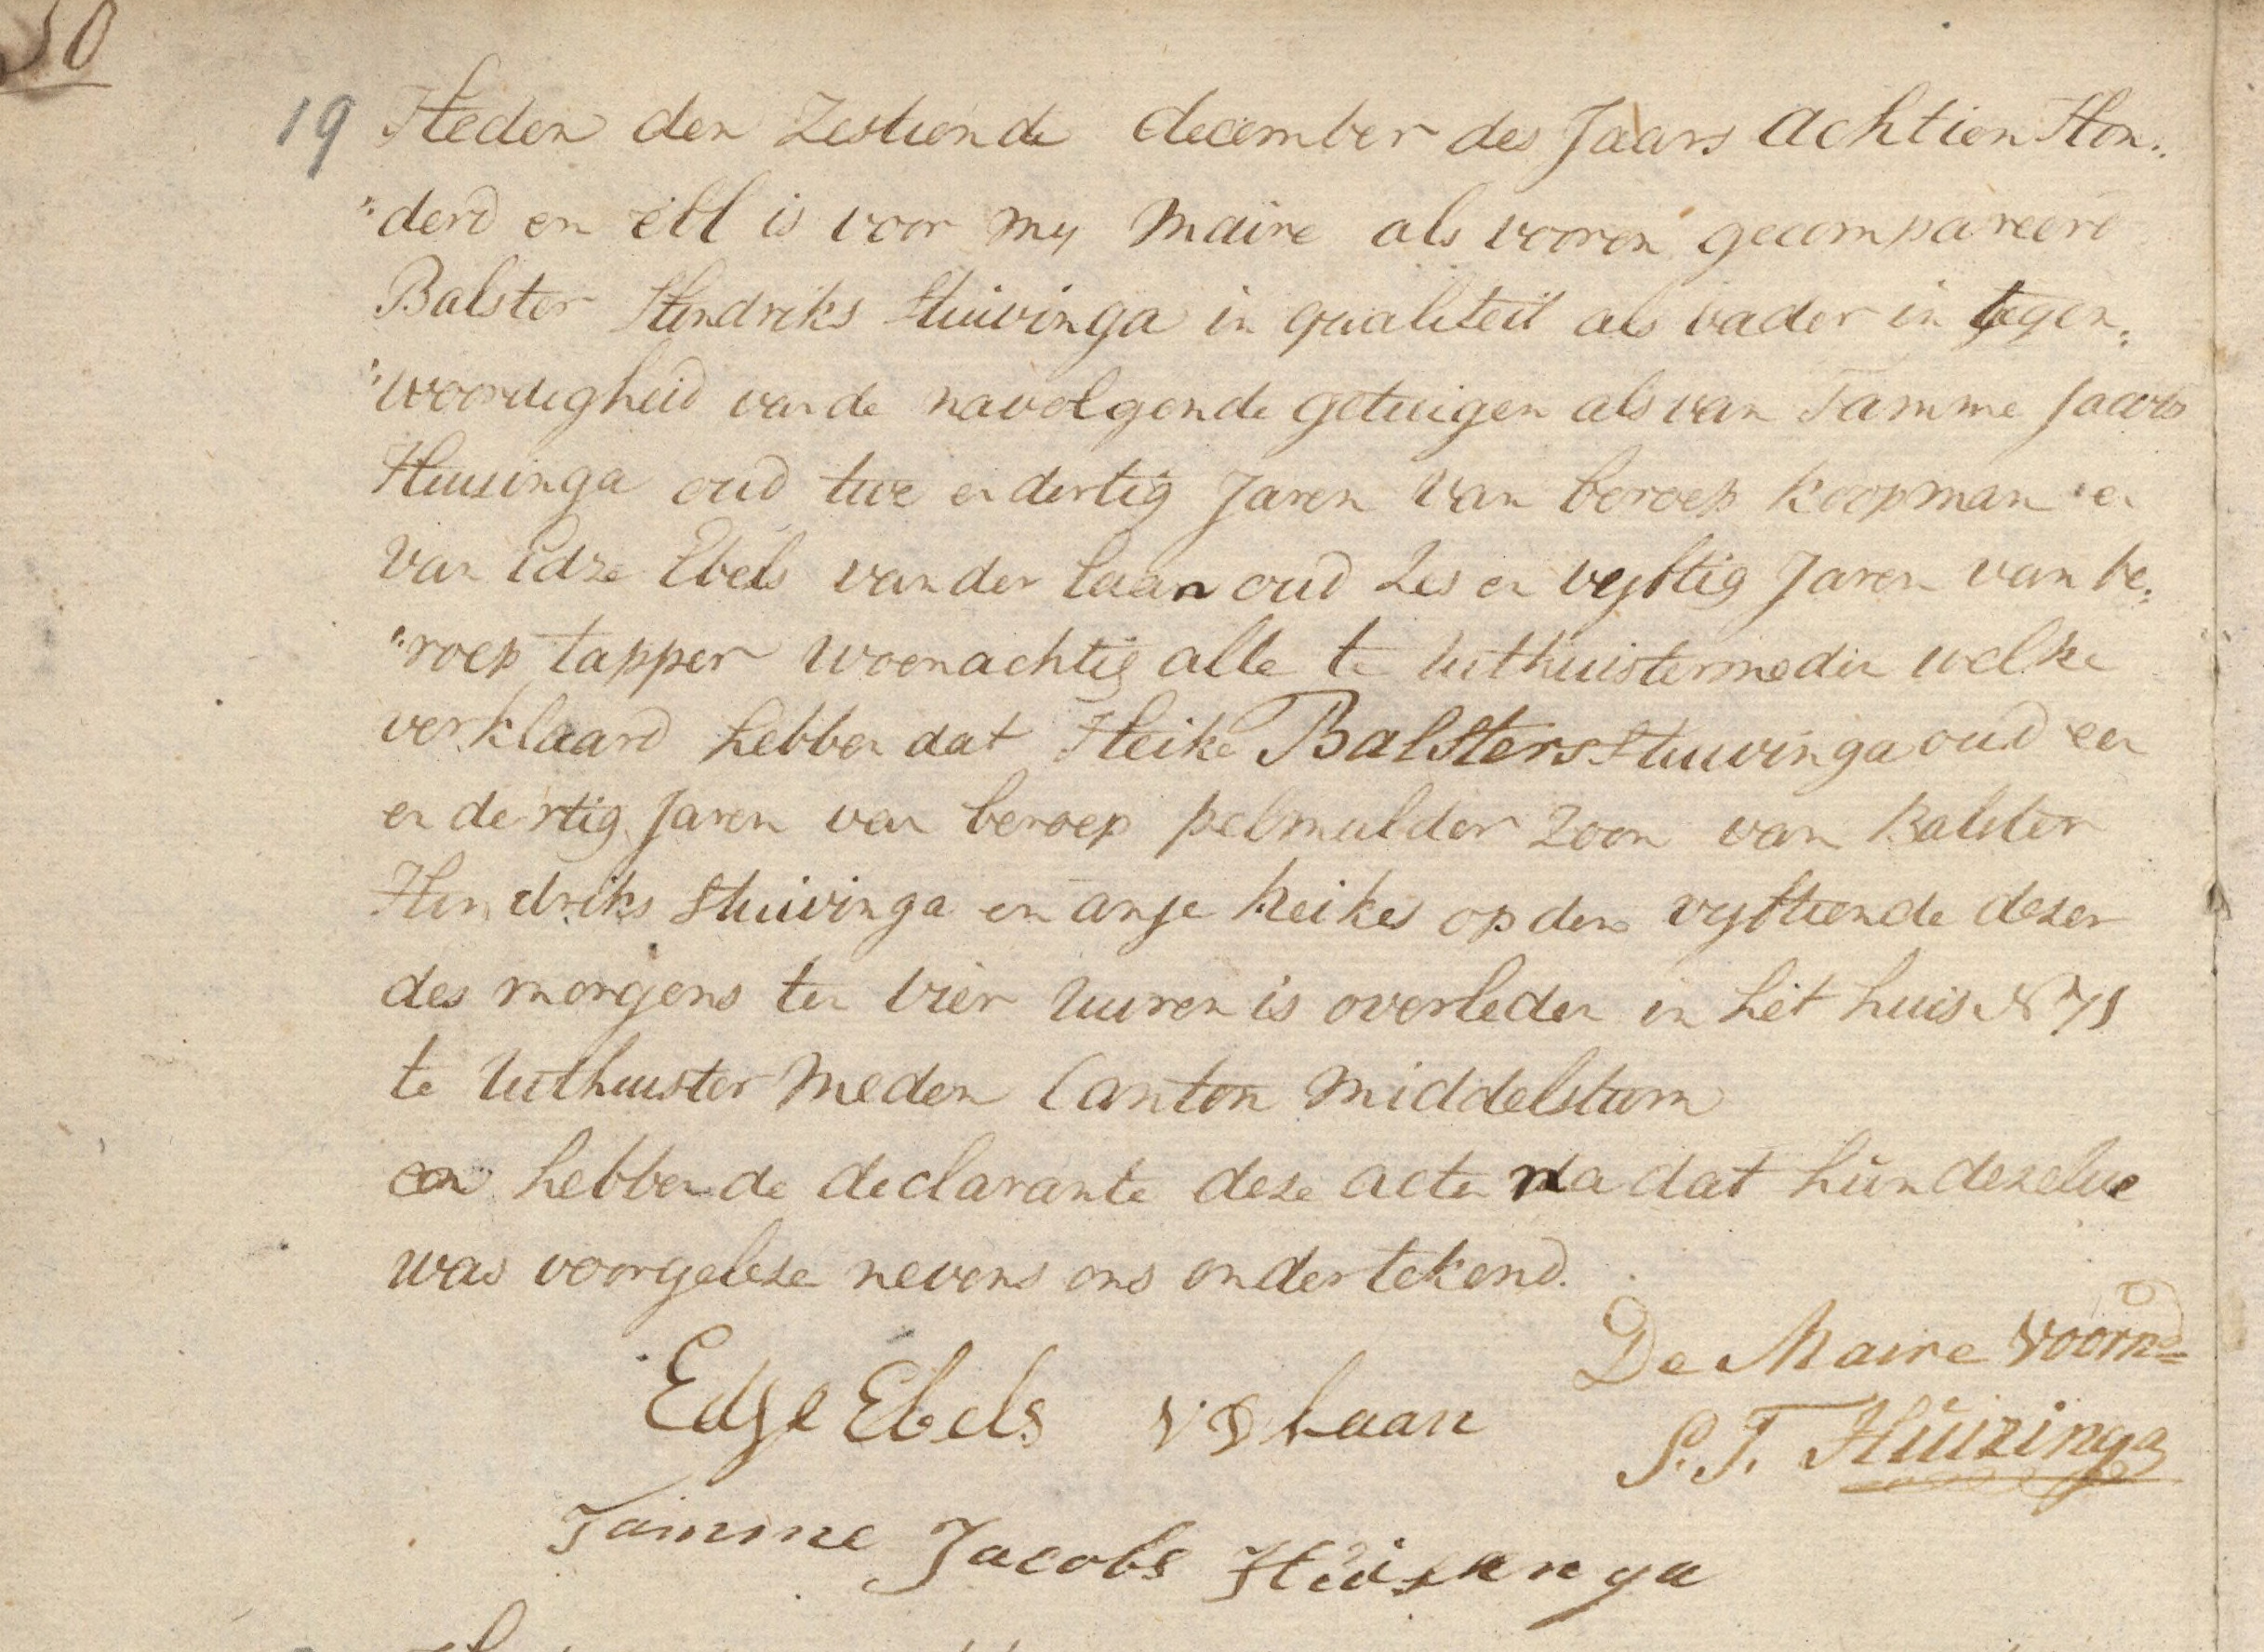 50
19 Heden den Zestiende december des Jaars achtien Hon„
„derd en elf is voor my Maire als vooren gecompareerd
Balster Hendriks Stuivinga in qualiteit als vader in tegen„
„woordigheid van de navolgende getuigen als van Tamme Jacobs
Huisinga oud twe en dertig Jaren van beroep koopman en
van Edze Ebels van der laan oud Zes en vyftig Jaren van be„
„roep tapper woenachtig alle te uithuistermeden welke
verklaard hebben dat Heike Balsters Stuivinga oud een
en dertig Jaren van beroep pelmulder Zoon van Balster
Hendriks Stuivinga en anje heikes op den vyftiende dezer
des morgens ten vier uuren is overleden in het huis N
te uithuister meden Canton middelstum
en hebben de declarante deze acten na dat hun dezelve
was voorgeleze nevens ons ondertekend.
De Maire voornd
Edze Ebels VD Laan
S. T. Huizinga
Tamme Jacobs Huizenga